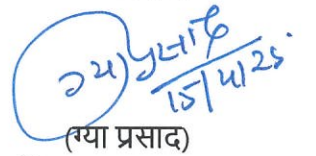 ग्या प्रसाद
15/4/25.
(ग्या प्रसाद)